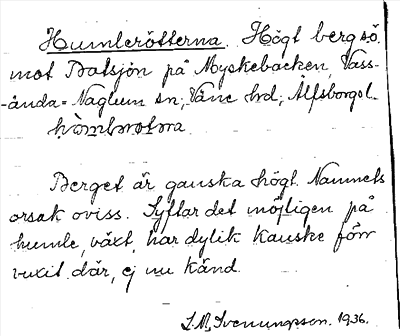 Humlerötterna. Högt berg sö.
mot Botsjön på Myskebacken, Vass-
-ända = Naglum sn; Väne hd; Älfsborgs l.
Berget är ganska högt. Namnets
orsak oviss. Syftar det möjligen på
humle, växt, har dylik kanske förr
vuxit där, ej nu känd.
S. M. Svenungsson. 1936.